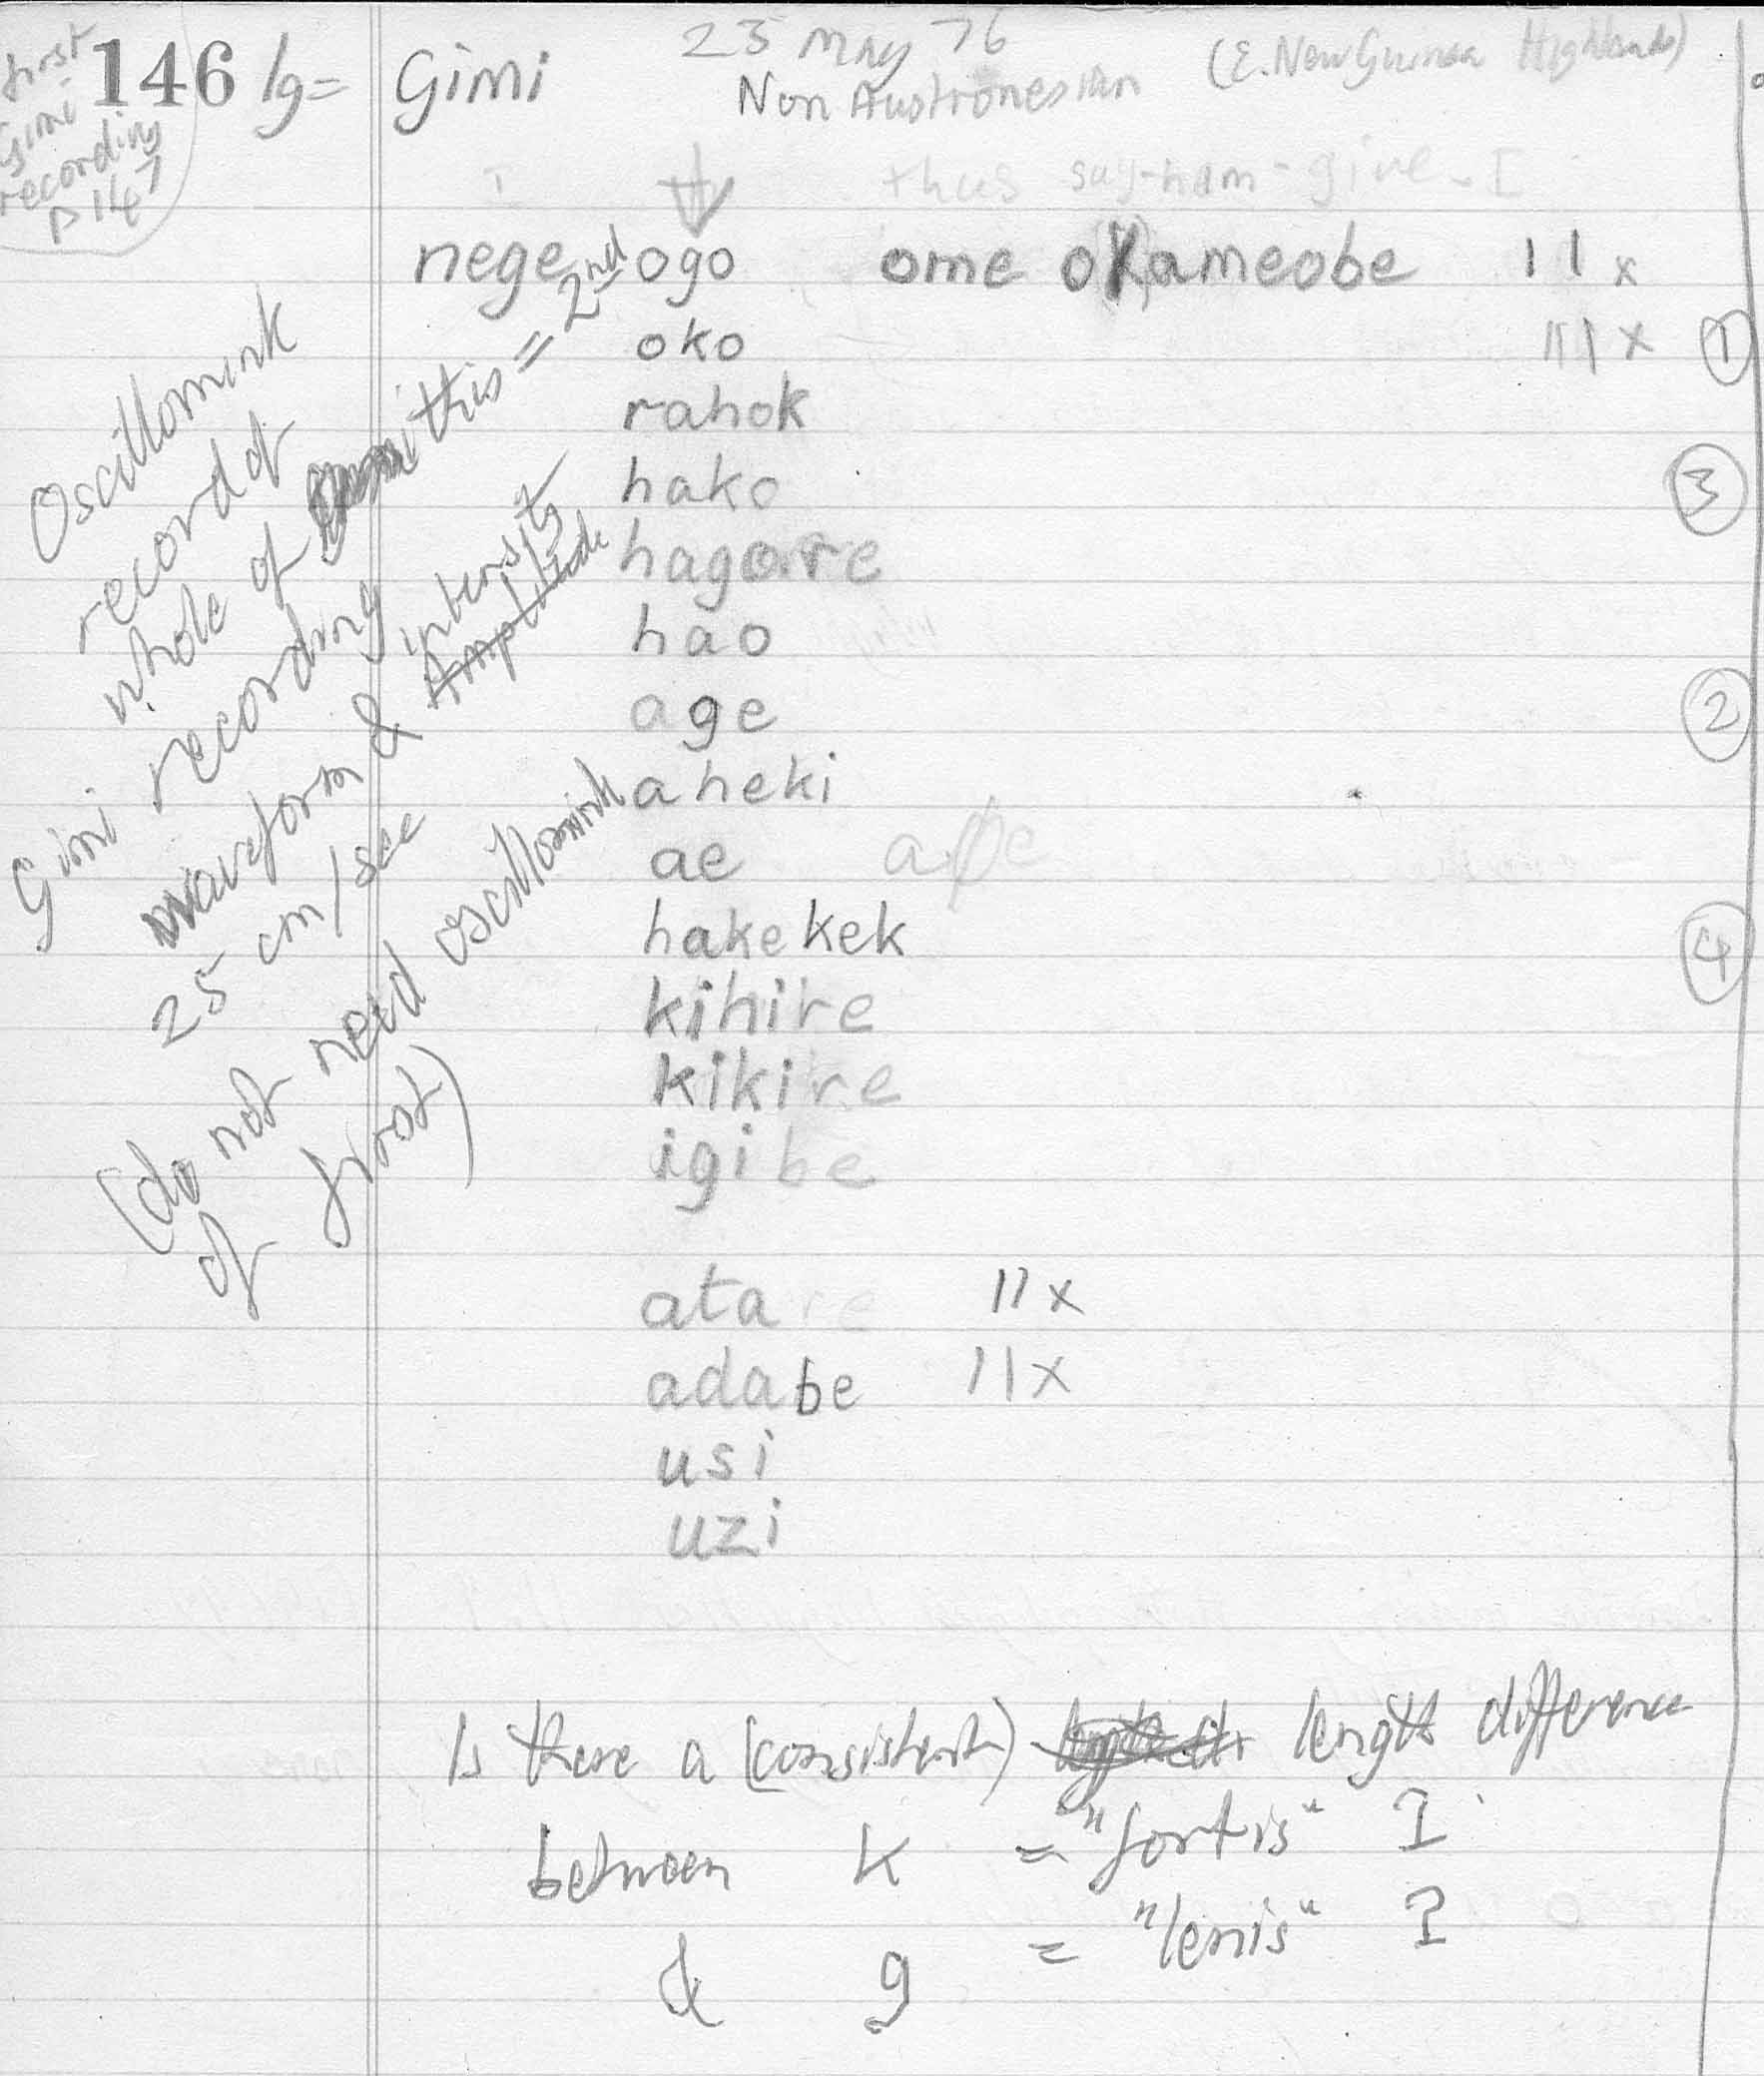 first
Gimi
recording
p 147
146 lg= Gimi
23 May 76
Non Austronesian
(E. New Guinea Highlands)
I thus say-him-give-I
nege ogo ome okameobe 11 x
oko 111 x 1
rahok
hako 3
hagorre
hao
age 2
aheki
ae
hakekek 4
kihire
kikire
igibe
atare 11 x
adabe 11 x
usi
uzi
Oscillomink
record of
whole of this = 2nd
Gimi recording
waveform & intensity
Amplitude
25 cm/sec
(do not need oscillomink
of first)
Is there a (consistent) length difference
between k = "fortis" ʔ
& g = "lenis" ʔ